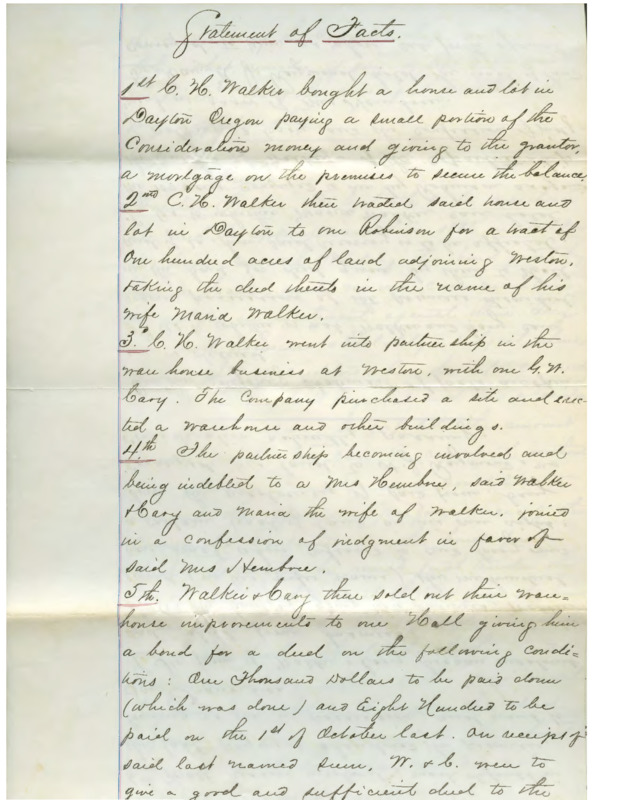 Statement of Facts.
1st C. H. Walker bought a house and lot in
Dayton Oregon paying a small portion of the
Consideration money and giving to the grantor,
a mortgage on the premises to secure the balance
2nd C. H. Walker then traded said house and
lot in Dayton to one Robinson for a tract of
One hundred acres of land adjoining Weston,
taking the deed thereto in the name of his
wife Maria Walker.
3d C. H. Walker went into partnership in the
ware house business at Weston, with one G. W.
Cary. The Company purchased a site and erec-
ted a warehouse and other buildings.
4th The partnership becoming involved and
being indebted to a Mrs Hembree, said Walker
& Cary and Maria the wife of Walker, joined
in a confession of judgment in favor of
said Mrs Hembree.
5th. Walker & Cary then sold out their ware=
house improvements to one Hall giving him
a bond for a deed on the following condi=
tions: One Thousand Dollars to be paid down
(which was done) and Eight Hundred to be
paid on the 1st of October last. On receipt of
said last named sum, W. & C. were to
give a good and sufficient deed to the